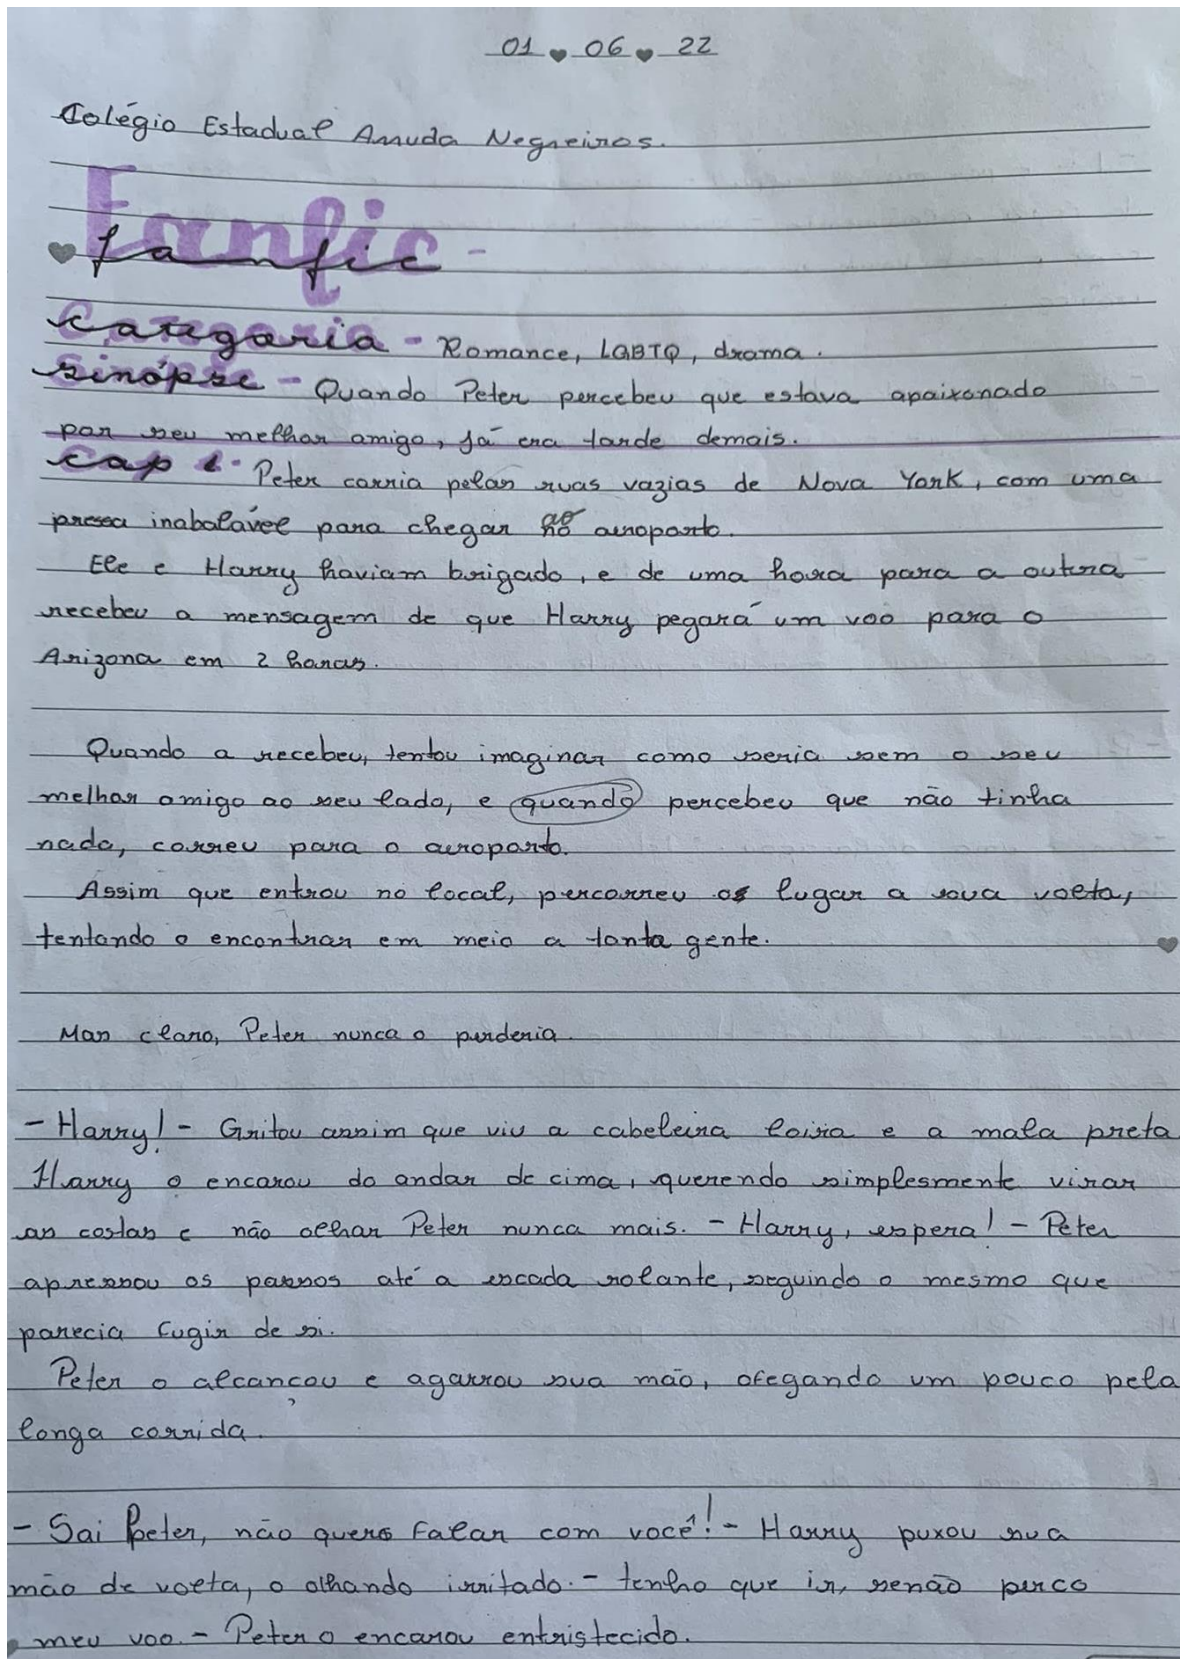 01 ♥ 06 ♥ 22
Colégio Estadual Arruda Negreiros.
Fanfic -
♥ fanfic
Categoria - Romance, LGBTQ, drama.
Sinópse - Quando Peter percebeu que estava apaixonado
por seu melhor amigo, já era tarde demais.
Cap 1 - Peter corria pelas ruas vazias de Nova York, com uma
pressa inabalável para chegar ao aeroporto.
Ele e Harry haviam brigado, e de uma hora para a outra
recebeu a mensagem de que Harry pegará um voo para o
Arizona em 2 horas.
Quando a recebeu, tentou imaginar como seria sem o seu
melhor amigo ao seu lado, e quando percebeu que não tinha
nada, correu para o aeroporto.
Assim que entrou no local, percorreu os lugar a sua volta,
tentando o encontrar em meio a tanta gente.
Mas claro, Peter nunca o perderia.
- Harry! - Gritou assim que viu a cabeleira loira e a mala preta
Harry o encarou do andar de cima, querendo simplesmente virar
as costas e não olhar Peter nunca mais. - Harry, espera! - Peter
apressou os passos até a escada rolante, seguindo o mesmo que
parecia fugir de si.
Peter o alcançou e agarrou sua mão, ofegando um pouco pela
longa corrida.
- Sai Peter, não quero falar com você! - Harry puxou sua
mão de volta, o olhando irritado. - tenho que ir, senão perco
meu voo. - Peter o encarou entristecido.